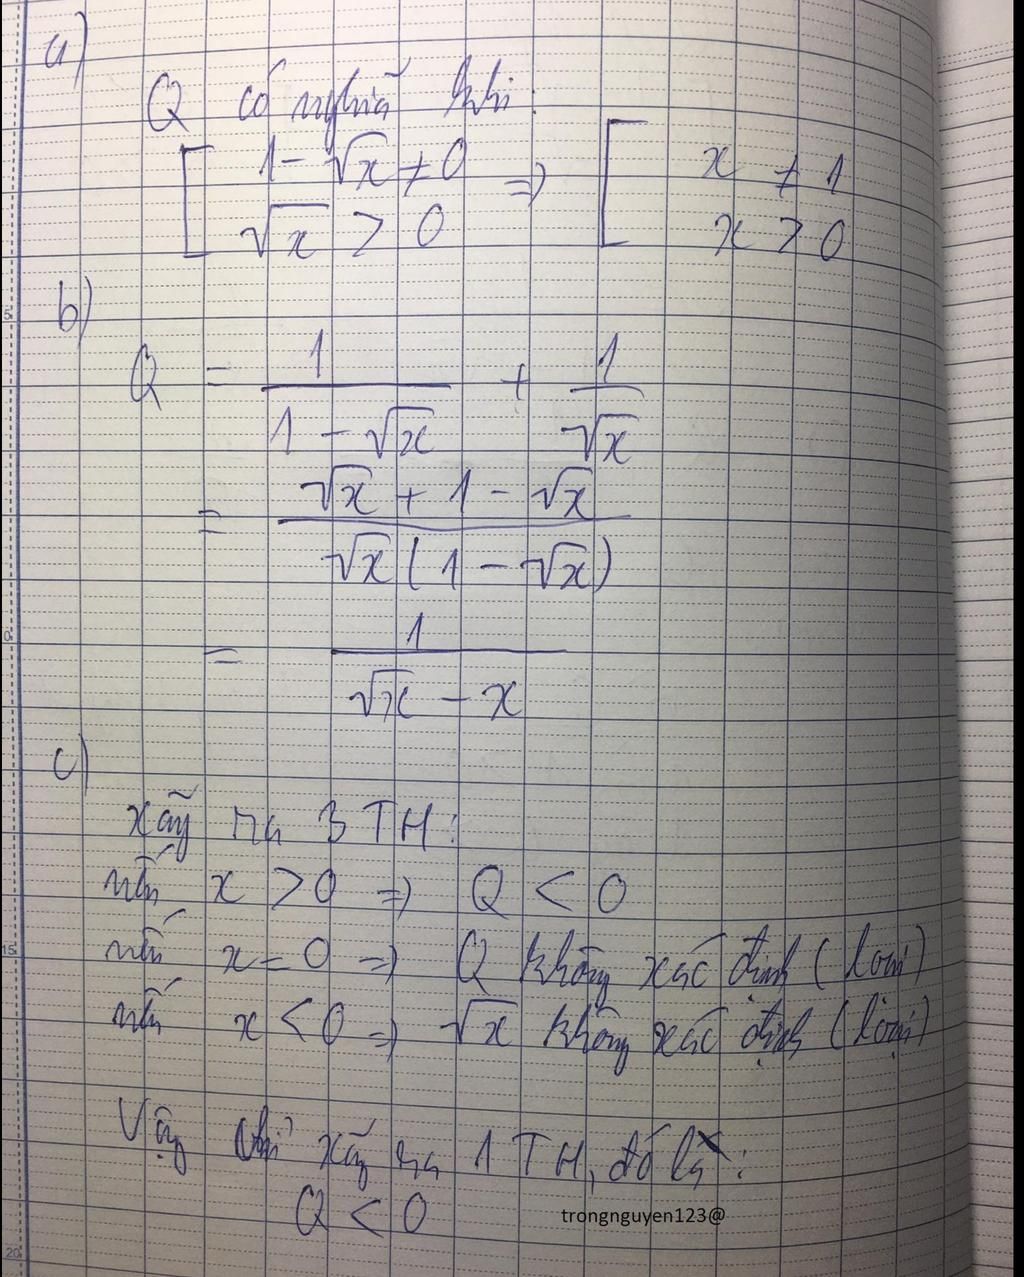 a)
Q có nghĩa khi:
1 - √x ≠ 0 => x ≠ 1
√x > 0 x > 0
b)
Q = 1/(1 - √x) + 1/√x
= (√x + 1 - √x)/(√x(1 - √x))
= 1/(√x - x)
c)
xãy ra 3 TH:
nếu x > 0 => Q < 0
nếu x = 0 => Q không xác định (loại)
nếu x < 0 => √x không xác định (loại)
Vậy chỉ xãy ra 1 TH, đó là:
Q < 0
trongnguyen123@
5
0
15
20